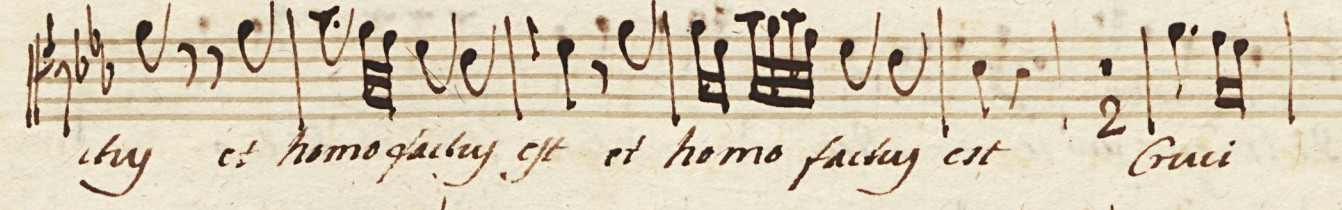 ctus et homo factus est et homo factus est Cruci
2